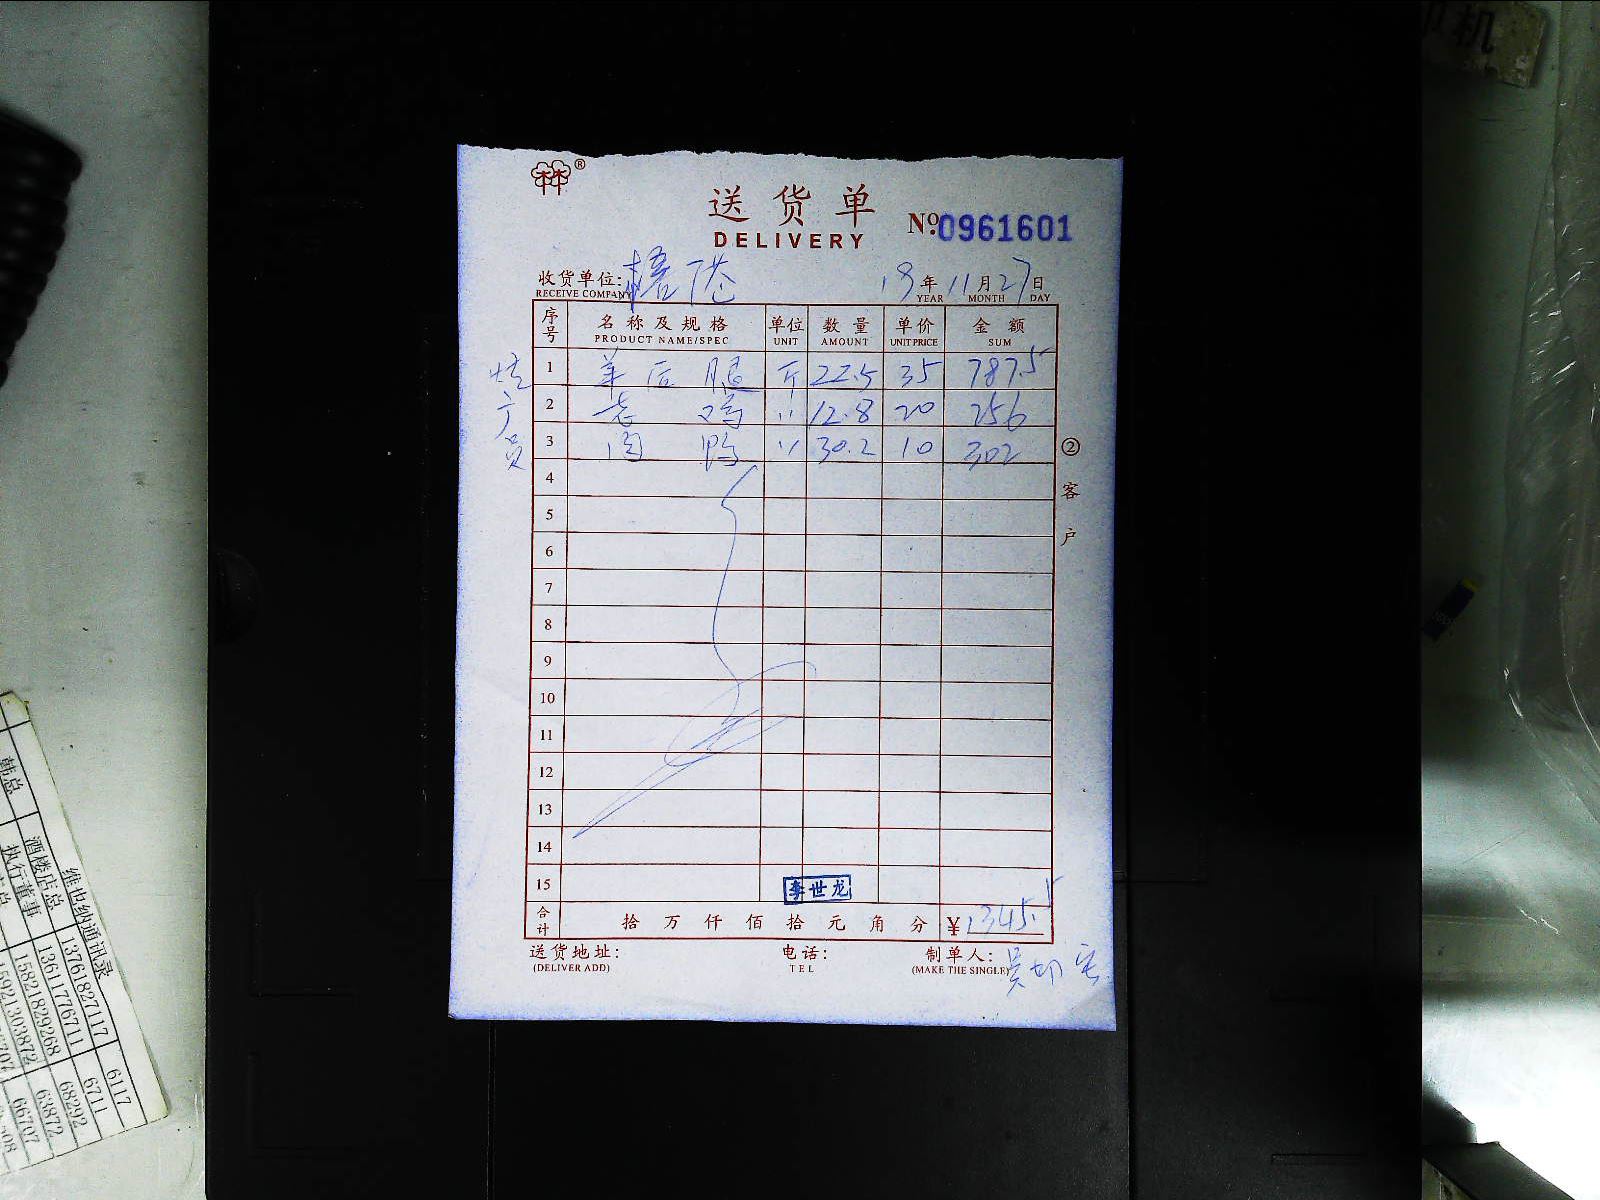 印机
®
送货单
DELIVERY
№0961601
收货单位:
RECEIVE COMPANY
19年11月27日
YEAR MONTH DAY
序号 名称及规格 单位 数量 单价 金额
PRODUCT NAME/SPEC UNIT AMOUNT UNIT PRICE SUM
1 羊后腿 斤 22.5 35 787.5
2 老鸡 〃 12.8 20 256
3 肉鸭 〃 30.2 10 302
4
5
6
7
8
9
10
11
12
13
14
15 李世龙
合计 拾万仟佰拾元角分 ¥1345.5
②客户
送货地址: 电话: 制单人:
(DELIVER ADD) TEL (MAKE THE SINGLE)
维也纳通讯录
韩总 酒楼店总 13761827117 6117
执行董事 13611776711 6711
15821829268 68292
15921303872 63872
66707